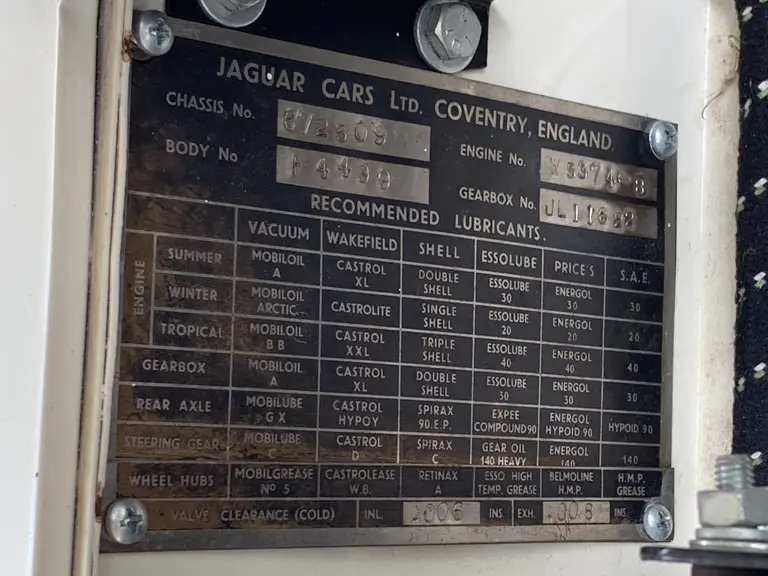 JAGUAR CARS LTD. COVENTRY, ENGLAND.
CHASSIS. No. 672509
BODY No
ENGINE No.
GEARBOX No.
RECOMMENDED LUBRICANTS.
VACUUM WAKEFIELD SHELL ESSOLUBE PRICE'S S.A.E.
ENGINE
SUMMER MOBILOIL A CASTROL XL DOUBLE SHELL ESSOLUBE 30 ENERGOL 30 30
WINTER MOBILOIL ARCTIC CASTROLITE SINGLE SHELL ESSOLUBE 20 ENERGOL 20 20
TROPICAL MOBILOIL B B CASTROL XXL TRIPLE SHELL ESSOLUBE 40 ENERGOL 40 40
GEARBOX MOBILOIL A CASTROL XL DOUBLE SHELL ESSOLUBE 30 ENERGOL 30 30
REAR AXLE MOBILUBE G X CASTROL HYPOY SPIRAX 90.E.P. EXPEE COMPOUND90 ENERGOL HYPOID 90 HYPOID 90
STEERING GEAR MOBILUBE C CASTROL D SPIRAX C GEAR OIL 140 HEAVY ENERGOL 140 140
WHEEL HUBS MOBILGREASE No 5 CASTROLEASE W.B. RETINAX A ESSO HIGH TEMP. GREASE BELMOLINE H.M.P. H.M.P. GREASE
VALVE CLEARANCE (COLD) INL. .006 INS. EXH. .008 INS.